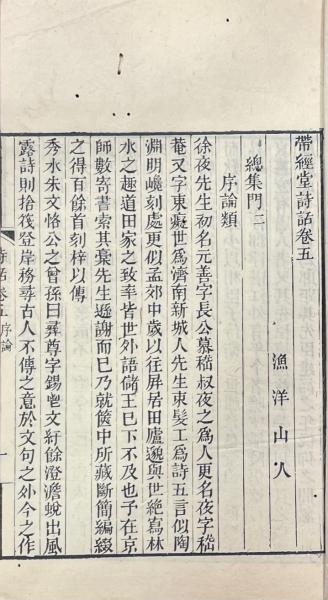 帶經堂詩話卷五
漁洋山人
總集門二
序論類
徐夜先生初名元善字長公慕嵇叔夜之爲人更名夜字嵇
菴又字東癡世爲濟南新城人先生束髮工爲詩五言似陶
淵明巉刻處更似孟郊中歲以往屏居田廬邈與世絕寫林
水之趣道田家之致率皆世外語儲王已下不及也予在京
師數寄書索其稾先生遜謝而已乃就篋中所藏斷簡編綴
之得百餘首刻梓以傳
秀水朱文恪公之曾孫曰彝尊字錫鬯文紆餘澄澹蛻出風
露詩則捨筏登岸務尋古人不傳之意於文句之外今之作
詩話卷五序論
一